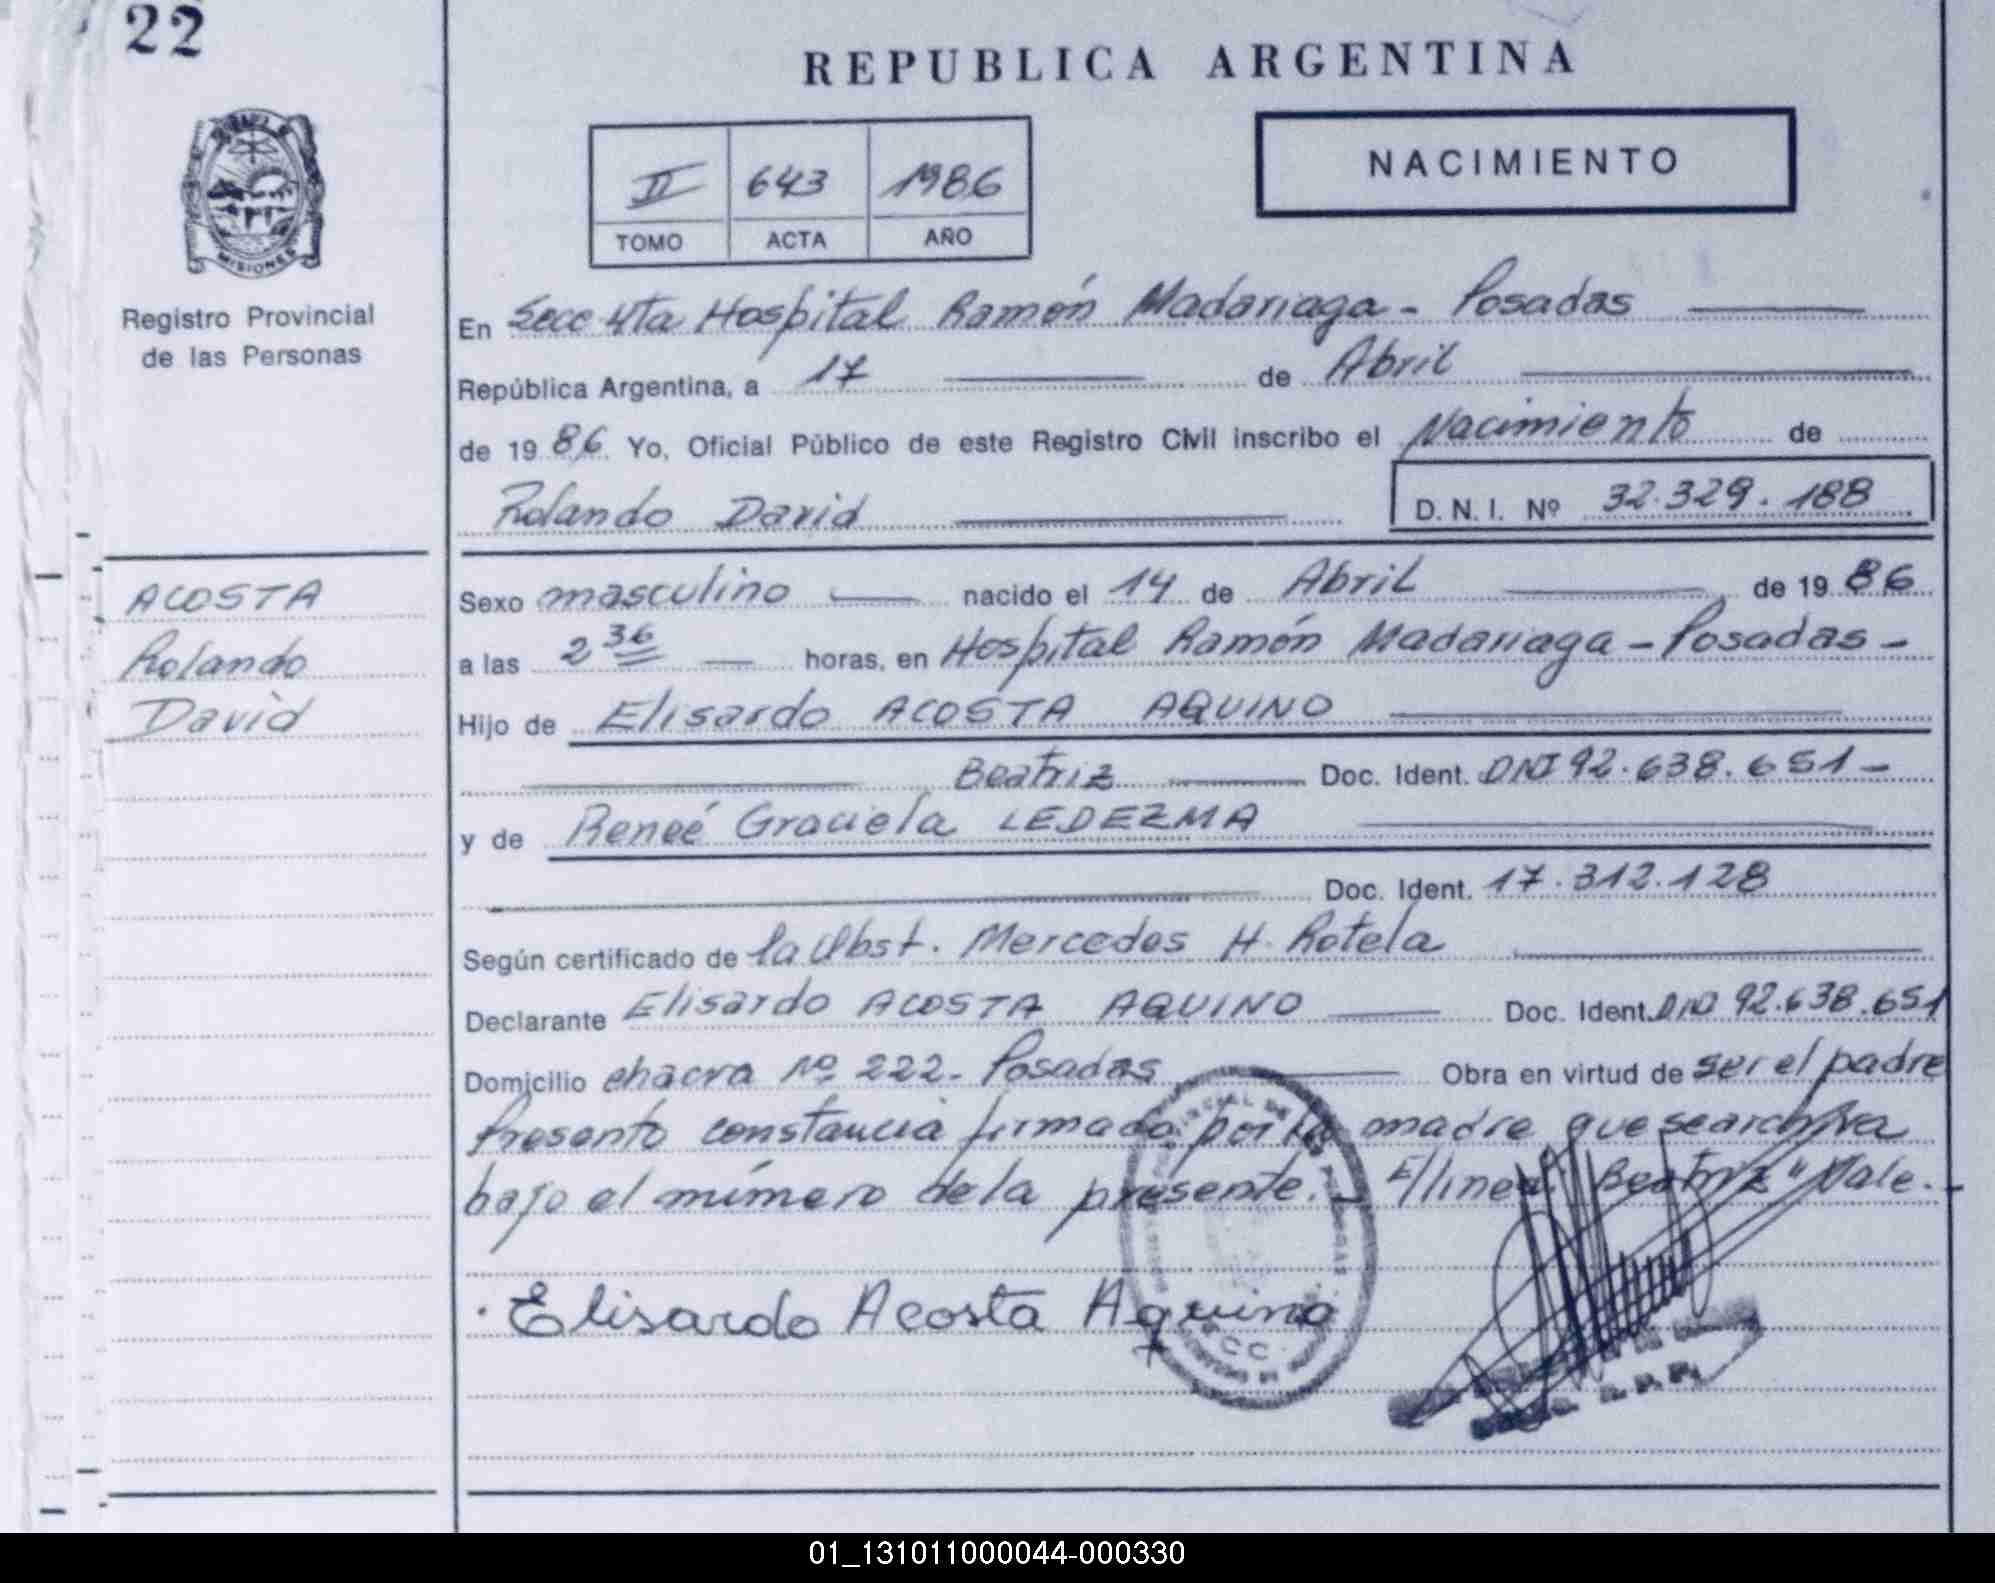 22
REPUBLICA ARGENTINA
II 643 1986
TOMO ACTA AÑO
NACIMIENTO
MISIONES
Registro Provincial
de las Personas
En Secc 4ta Hospital Ramón Madariaga - Posadas
República Argentina, a 17 de Abril
de 1986. Yo, Oficial Público de este Registro Civil inscribo el Nacimiento de
Rolando David D. N. I. Nº 32.329.188
ACOSTA
Rolando
David
Sexo masculino nacido el 14 de Abril de 1986
a las 2 36 horas, en Hospital Ramón Madariaga - Posadas -
Hijo de Elisardo ACOSTA AQUINO
Beatriz Doc. Ident. DNI 92.638.651 -
y de Reneé Graciela LEDEZMA
Doc. Ident. 17.312.128
Según certificado de la Obst. Mercedes H. Rotela
Declarante Elisardo ACOSTA AQUINO Doc. Ident. DNI 92.638.651
Domicilio chacra Nº 222 - Posadas Obra en virtud de ser el padre
Presento constancia firmada por la madre que se archiva
bajo el número de la presente. - E/linea: "Beatriz" Vale. -
Elisardo Acosta Aquino
01_131011000044-000330